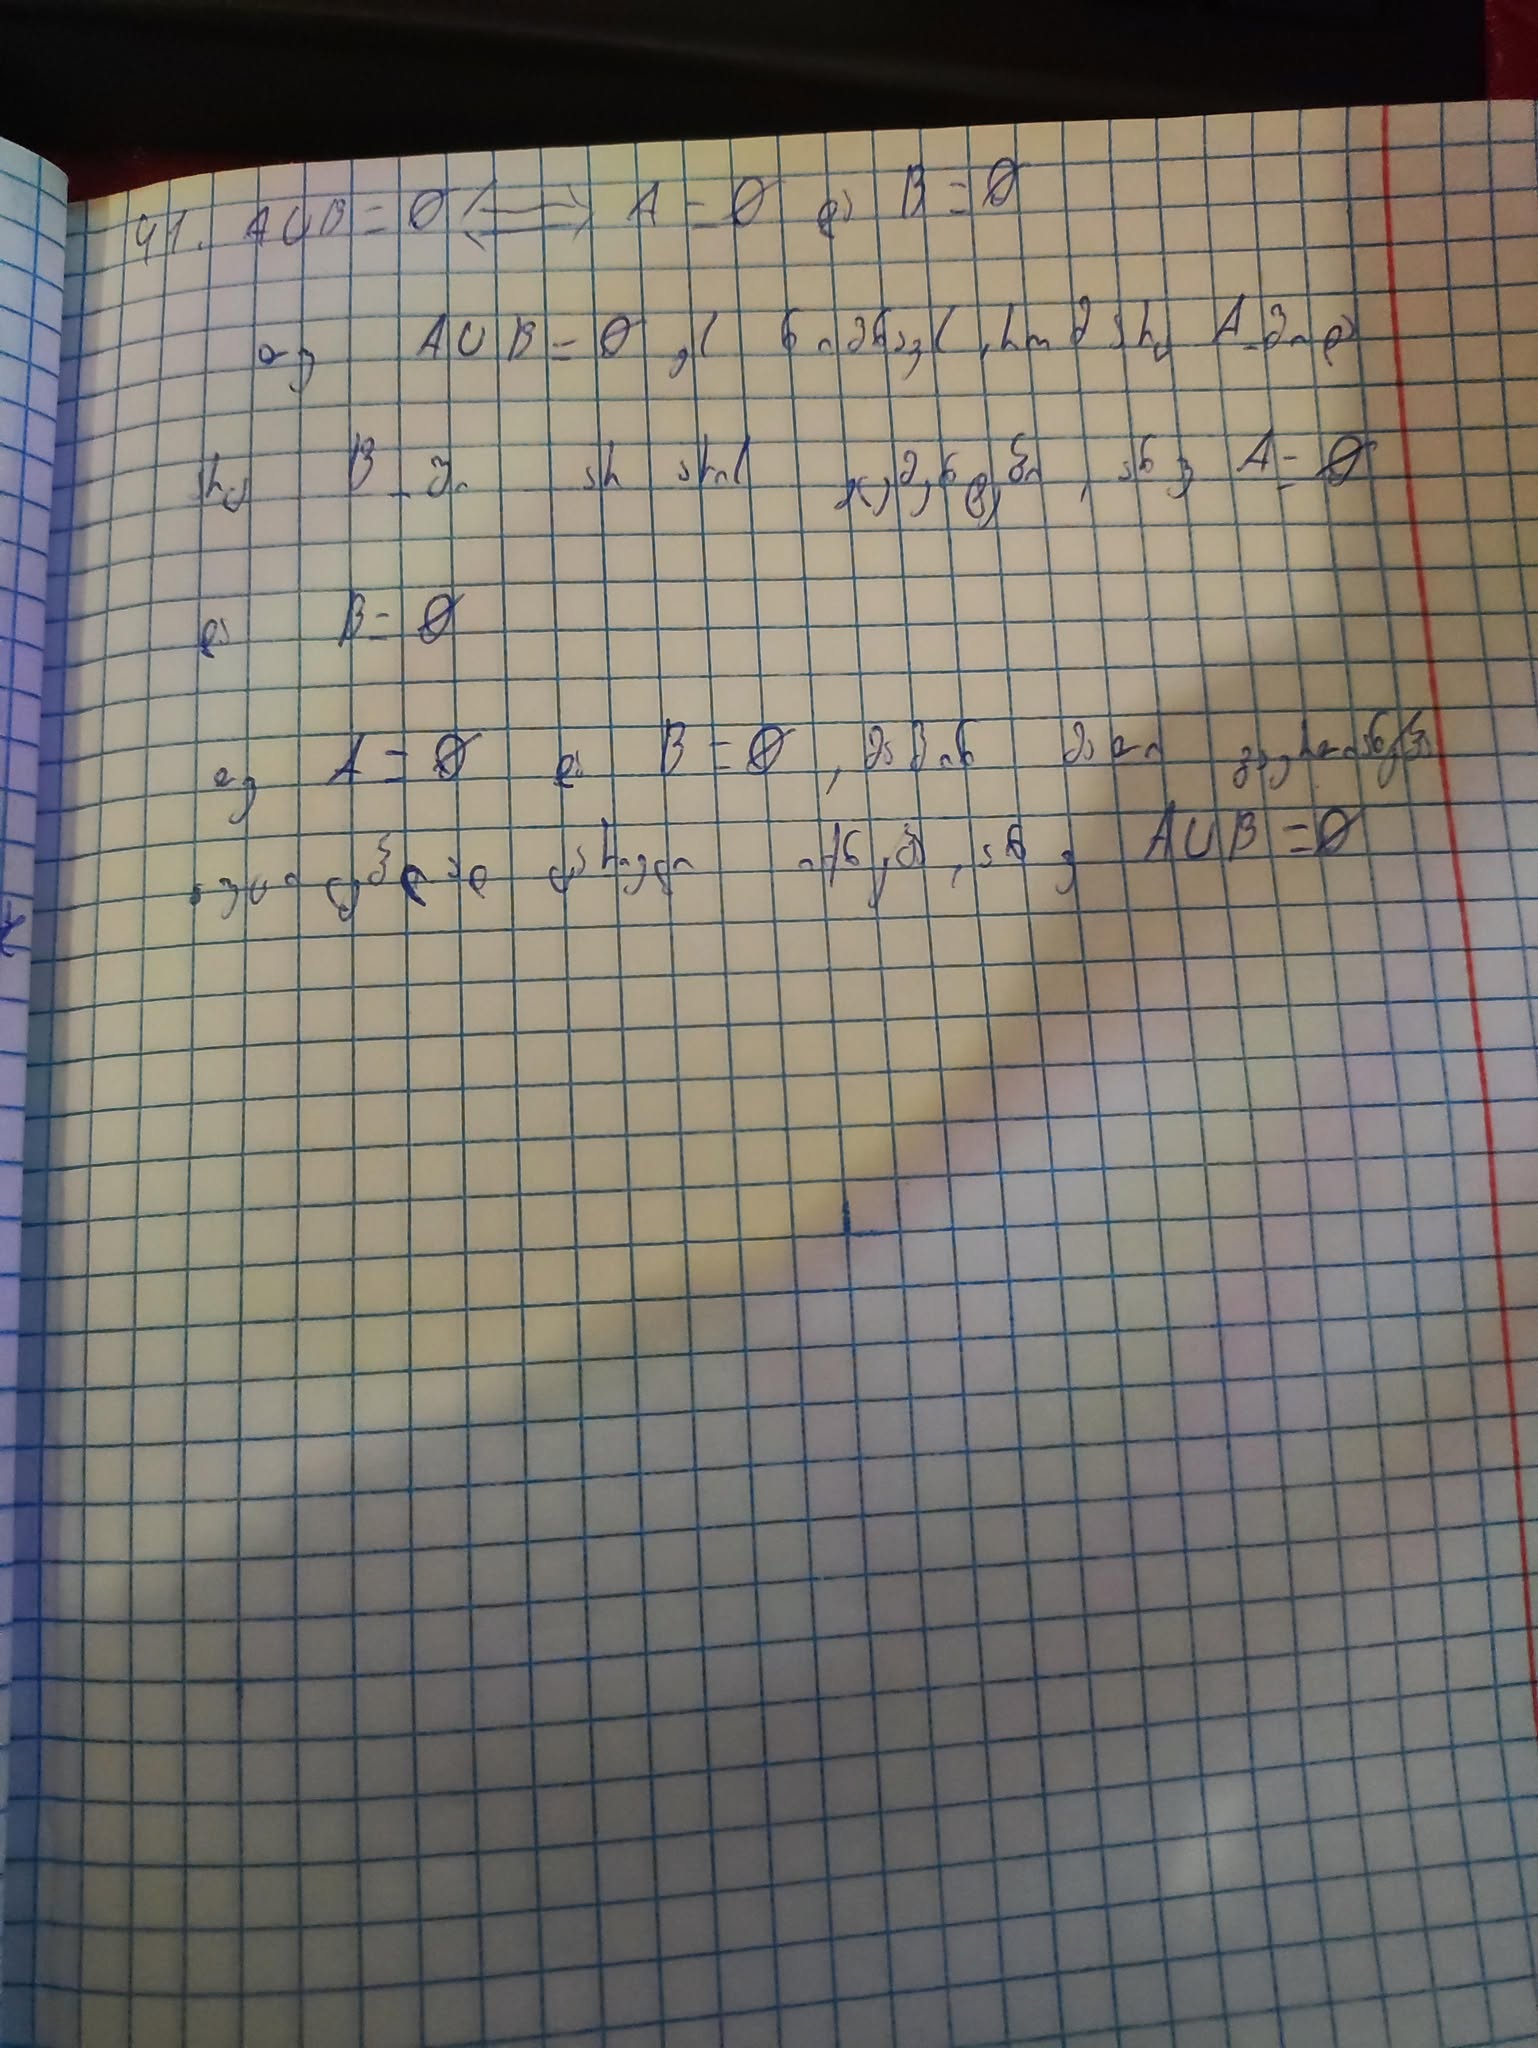 41. A∪B = ∅ <=> A = ∅ და B = ∅
თუ A∪B = ∅, ეს ნიშნავს, რომ არც A-ში და
არც B-ში არ არის ელემენტი, ანუ A = ∅
და B = ∅
თუ A = ∅ და B = ∅, მაშინ მათი გაერთიანება
აგრეთვე ცარიელი იქნება, ანუ A∪B = ∅